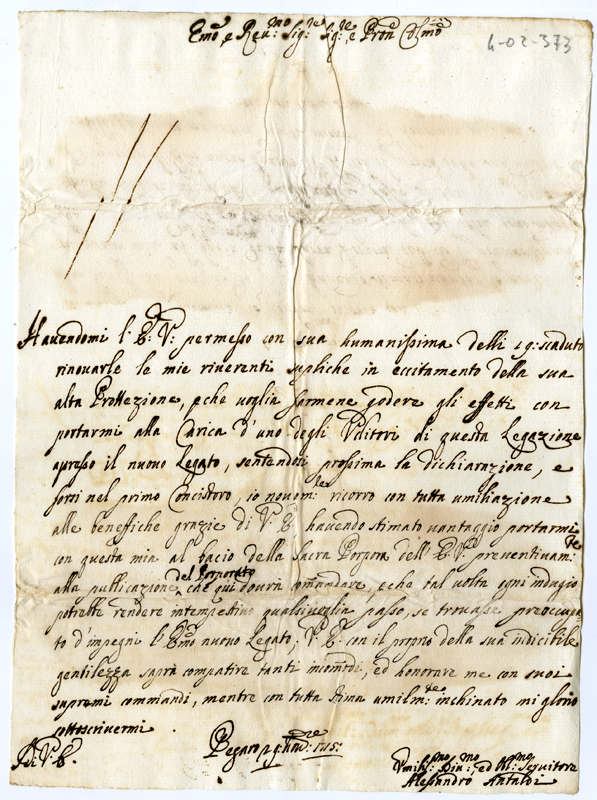 Emo, e Reu:mo Sig:re Sig:re, e Pron Colmo
4-02-373
Hauendomi l'E: V: permesso con sua humanissima delli 19: scaduto
rinouarle le mie riuerenti supliche in eccitamento della sua
alta Protezione, pche voglia farmene godere gli effetti con
portarmi alla Carica d'uno degli Vditori di questa Legazione
apresso il nuouo Legato, sentendosi prossima la dichiarazione, e
forsi nel primo Concistoro, io nouam:te ricorro con tutta umiliazione
alle benefiche grazie di V: E: hauendo stimato vantaggio portarmi
con questa mia al bacio della Sacra Porpora dell'E: V: preventiuam:te
alla publicazione del Porporato che qui dourà comandare, e che tal volta ogni indugio
potrebbe rendere intempestiuo qualsiuoglia passo, se trouasse preoccupa-
to d'impegni l'Emo nuouo Legato; V: E: con il proprio della sua indicibile
gentilezza saprà compatire tanti incomodi, ed honorare me con suoi
supremi commandi, mentre con tutta stima umilm:te inchinato mi glorio
sottoscriuermi.
D: V: E:
Pesaro 29 1715:
Vmil:mo Diu:mo, ed Seruitore
Alessandro Antaldi